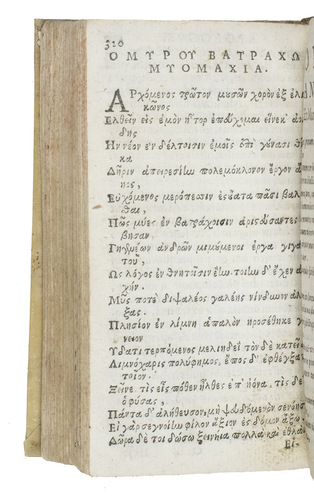 320
ΟΜΥΡΟΥ ΒΑΤΡΑΧΩ
ΜΥΟΜΑΧΙΑ.
ΑΡχόμενος πρῶτον μυσῶν χορὸν ἐξ ἑλι
κῶνος
Ελθεῖν εἰς ἐμὸν ἦτορ ἐπεύχομαι εἵνεκ' ἀοι
δῆς
Ην νέον ἐν δέλτοισιν ἐμοῖς ἐπὶ γούνασι θῆ
κα
Δῆριν ἀπειρεσίην πολεμόκλονον ἔργον ἄρη
νος,
Εὐχόμενος μερόπεσσιν ἐς οὔατα πᾶσι βαλ
έσθαι,
Πῶς μύες ἐν βατράχοισιν ἀριστεύσαντες
βῆσαν
Γηγενέων ἀνδρῶν μιμούμενοι ἔργα γιγά
των,
Ως λόγος ἐν θνητοῖσιν ἔην. τοίην δ' ἔχεν ἀρ
χήν.
Μῦς ποτὲ διψαλέος γαλέης κίνδυνον ἀλύ
ξας.
Πλησίον ἐν λίμνῃ ἁπαλὸν προσέθηκε γέ
νειον
Υδατι τερπόμενος μελιηδεῖ τὸν δὲ κατεῖδε
Λιμνόχαρις πολύφημος, ἔπος δ' ἐφθέγξατο
τοῖον.
Ξεῖνε τίς εἶς πόθεν ἦλθες ἐπ' ἠϊόνα. τίς δέ σ'
ὁ φύσας,
Πάντα δ' ἀλήθευσον, μὴ ψευδόμενόν σε νοήσω
Εἰ γάρ σε γνοίην φίλον ἄξιον ἐς δόμον ἄξω.
Δῶρα δέ τοι δώσω ξεινήια πολλὰ καὶ ἐθλά.
Εἰ-